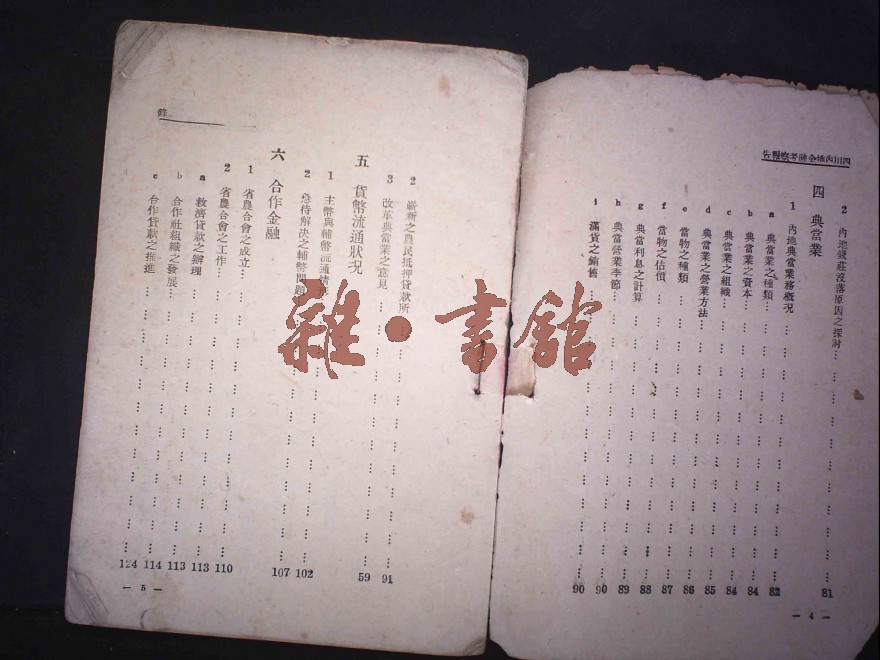 四川內地金融考察報告
2 內地錢莊沒落原因之探討
四 典當業 81
1 內地典當業務概況 82
a 典當業之種類 84
b 典當業之資本 84
c 典當業之組織 85
d 典當業之營業方法 86
e 當物之種類 87
f 當物之估價 88
g 典當利息之計算 89
h 典當營業季節 90
i 滿貨之銷售 90
— 4 —
2 嶄新之農民抵押貸款所 91
3 改革典當業之意見 59
五 貨幣流通狀況
1 主幣與輔幣流通情
2 急待解決之輔幣問題 102
六 合作金融 107
1 省農合會之成立
2 省農合會之工作 110
a 救濟貸款之辦理 113
b 合作社組織之發展 113
c 合作貸款之推進 114
124
— 5 —
雜·書館